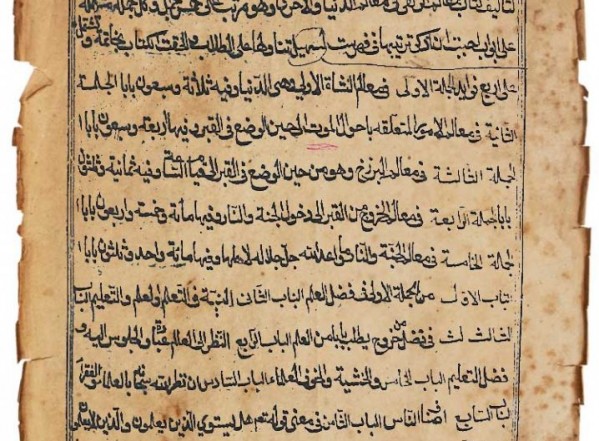 التأليف كتاب معالم الزلفى في معالم الدنيا والأخرى وهو مرتب على خمس جملة وكل جملة مشتملة
على ابواب احببت ان اذكر ترتيبها في فهرست لتسهيل تناولها على الطالب والحقت الكتاب بخاتمة وتشتمل
على اربع فوايد الجملة الاولى في معالم النشاة الاولى وهى الدنيا وفيه ثلاثة وسبعون بابا الجملة
الثانية في معالم الامور المتعلقه باحوال الموت الى حين الوضع في القبر وفيها اربعة وسبعون بابا ا
لجملة الثالثة في معالم البرزخ وهو من حين الوضع في القبر الى قيام الساعة وفيه ثمانية وثلثون
بابا الجملة الرابعة في معالم الخروج من القبر الى دخول الجنة والنار وفيها مأتة وخمسة واربعون بابا ا
لجملة الخامسة في معالم الجنة والنار وما اعد الله جل جلاله لاهلها وفيها مأتة واحد وثلثون بابا ا
لباب الاول من الجملة الاولى في فضل العلم الباب الثانى النية في التعلم والعلم والتعليم الباب
الثالث في فضل من خروج يطلب بابا من العلم الباب الرابع النظر الى العالم عبادة والجلوس اليه و
فضل التعليم الباب الخامس والخشية والخوف العلماء الباب السادس ان نظر الله سبحانه بالعلماء والفقراء
الباب السابع اصناف الناس الباب الثامن في معنى قوله تعالى هل يستوي الذين يعلمون والذين لا يعلمون